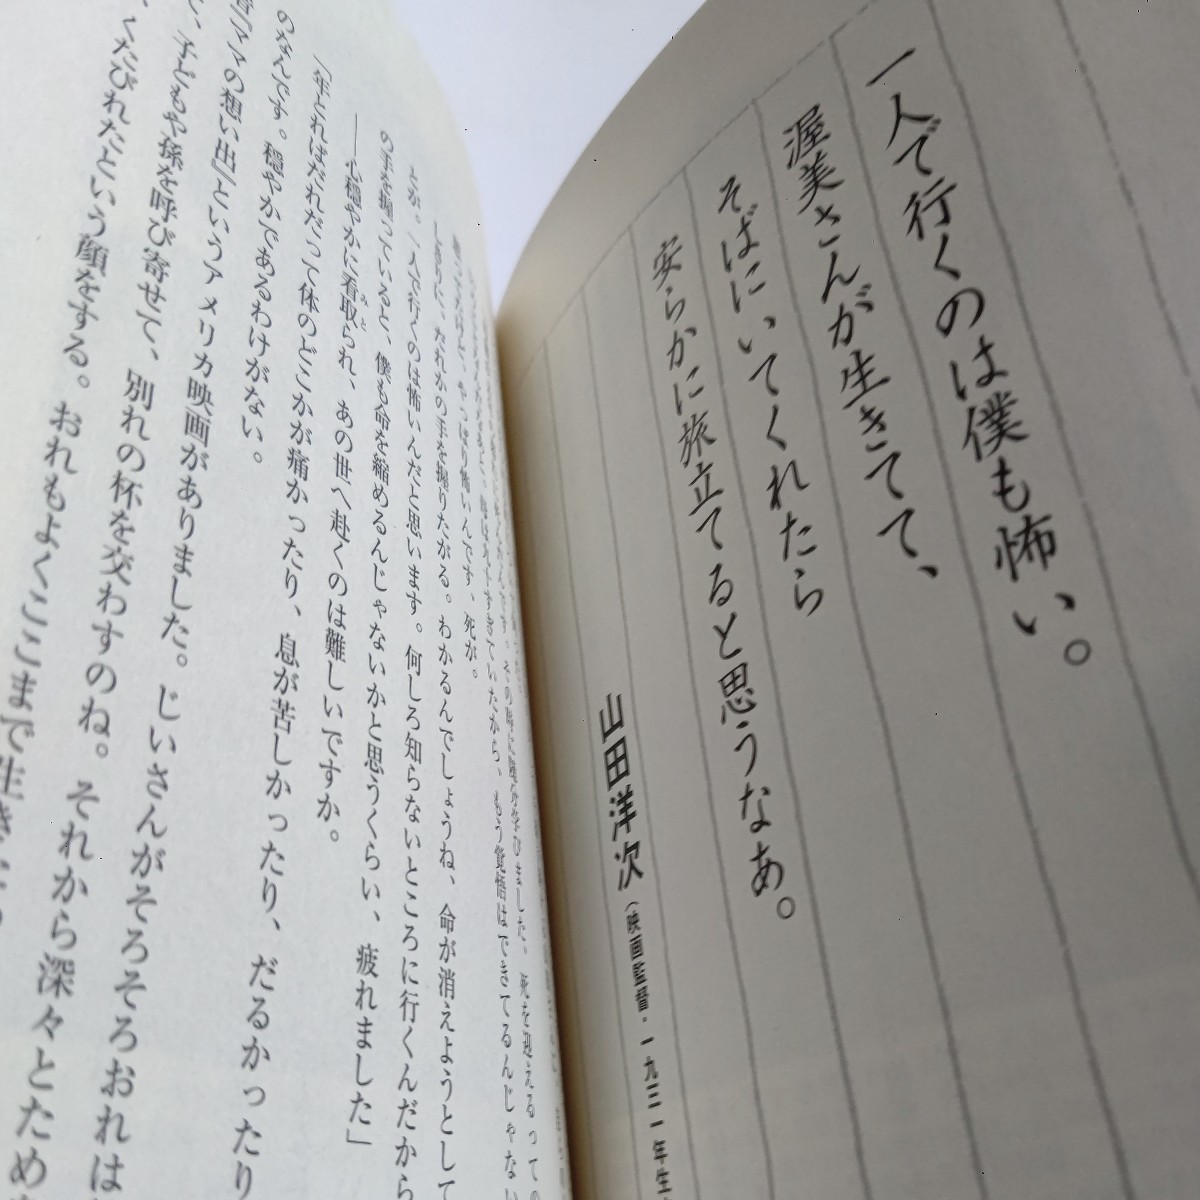 一人で行くのは僕も怖い。
渥美さんが生きてて、
そばにいてくれたら
安らかに旅立てると思うなあ。
山田洋次(映画監督・一九三一年生
もう覚悟はできてるんじゃない
やっぱり怖いんです、死が。
しきりに、だれかの手を握りたがる。わかるんでしょうね、命が消えようとして
とが。一人で行くのは怖いんだと思います。何しろ知らないところに行くんだから
の手を握っていると、僕も命を縮めるんじゃないかと思うくらい、疲れました」
――心穏やかに看取られ、あの世へ赴くのは難しいですか。
みと
「年とればだれだって体のどこかが痛かったり、息が苦しかったり、だるかったり
のなんです。穏やかであるわけがない。
『ママの想い出』というアメリカ映画がありました。じいさんがそろそろおれは
、子どもや孫を呼び寄せて、別れの杯を交わすのね。それから深々とため
くたびれたという顔をする。おれもよくここまで生きた